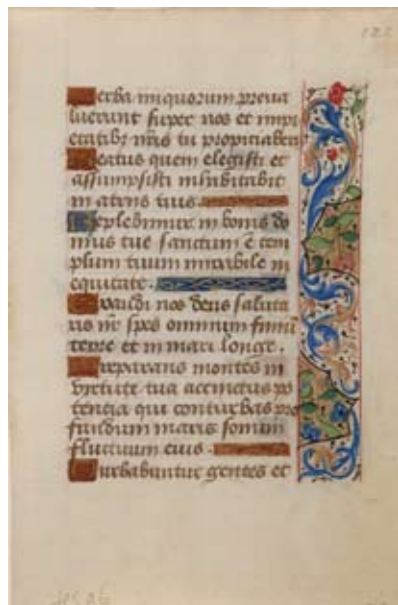 Verba iniquorum preva
luerunt super nos et impi
etatibz nris tu propiciaberis
Beatus quem elegisti et
assumpsisti inhabitabit
in atriis tuis.
Replebimur in bonis do
mus tue sanctum e tem
plum tuum mirabile in
equitate.
Exaudi nos deus saluta
ris nr spes omnium finiu
terre et in mari longe.
Preparans montes in
virtute tua accinctus po
tencia qui conturbas pro
fundum maris sonum
fluctuum eius.
Turbabuntur gentes et